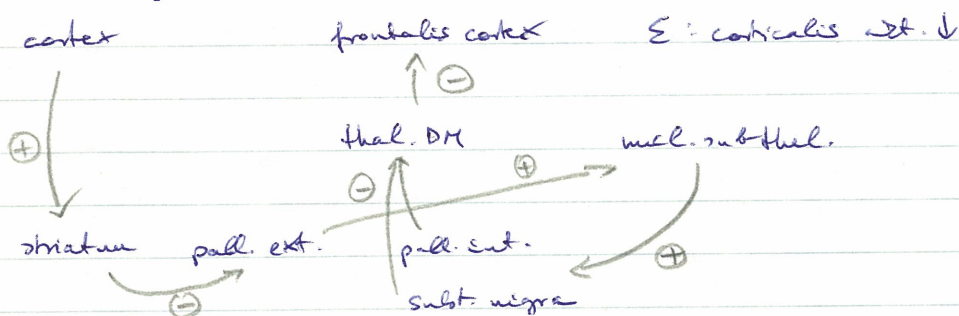 cortex frontalis cortex Σ: corticalis ↓
⊖
⊕ thal. DM nucl. subthal.
⊖ ⊕
striatum pall. ext. pall. int. ⊕
⊖ subst. nigra